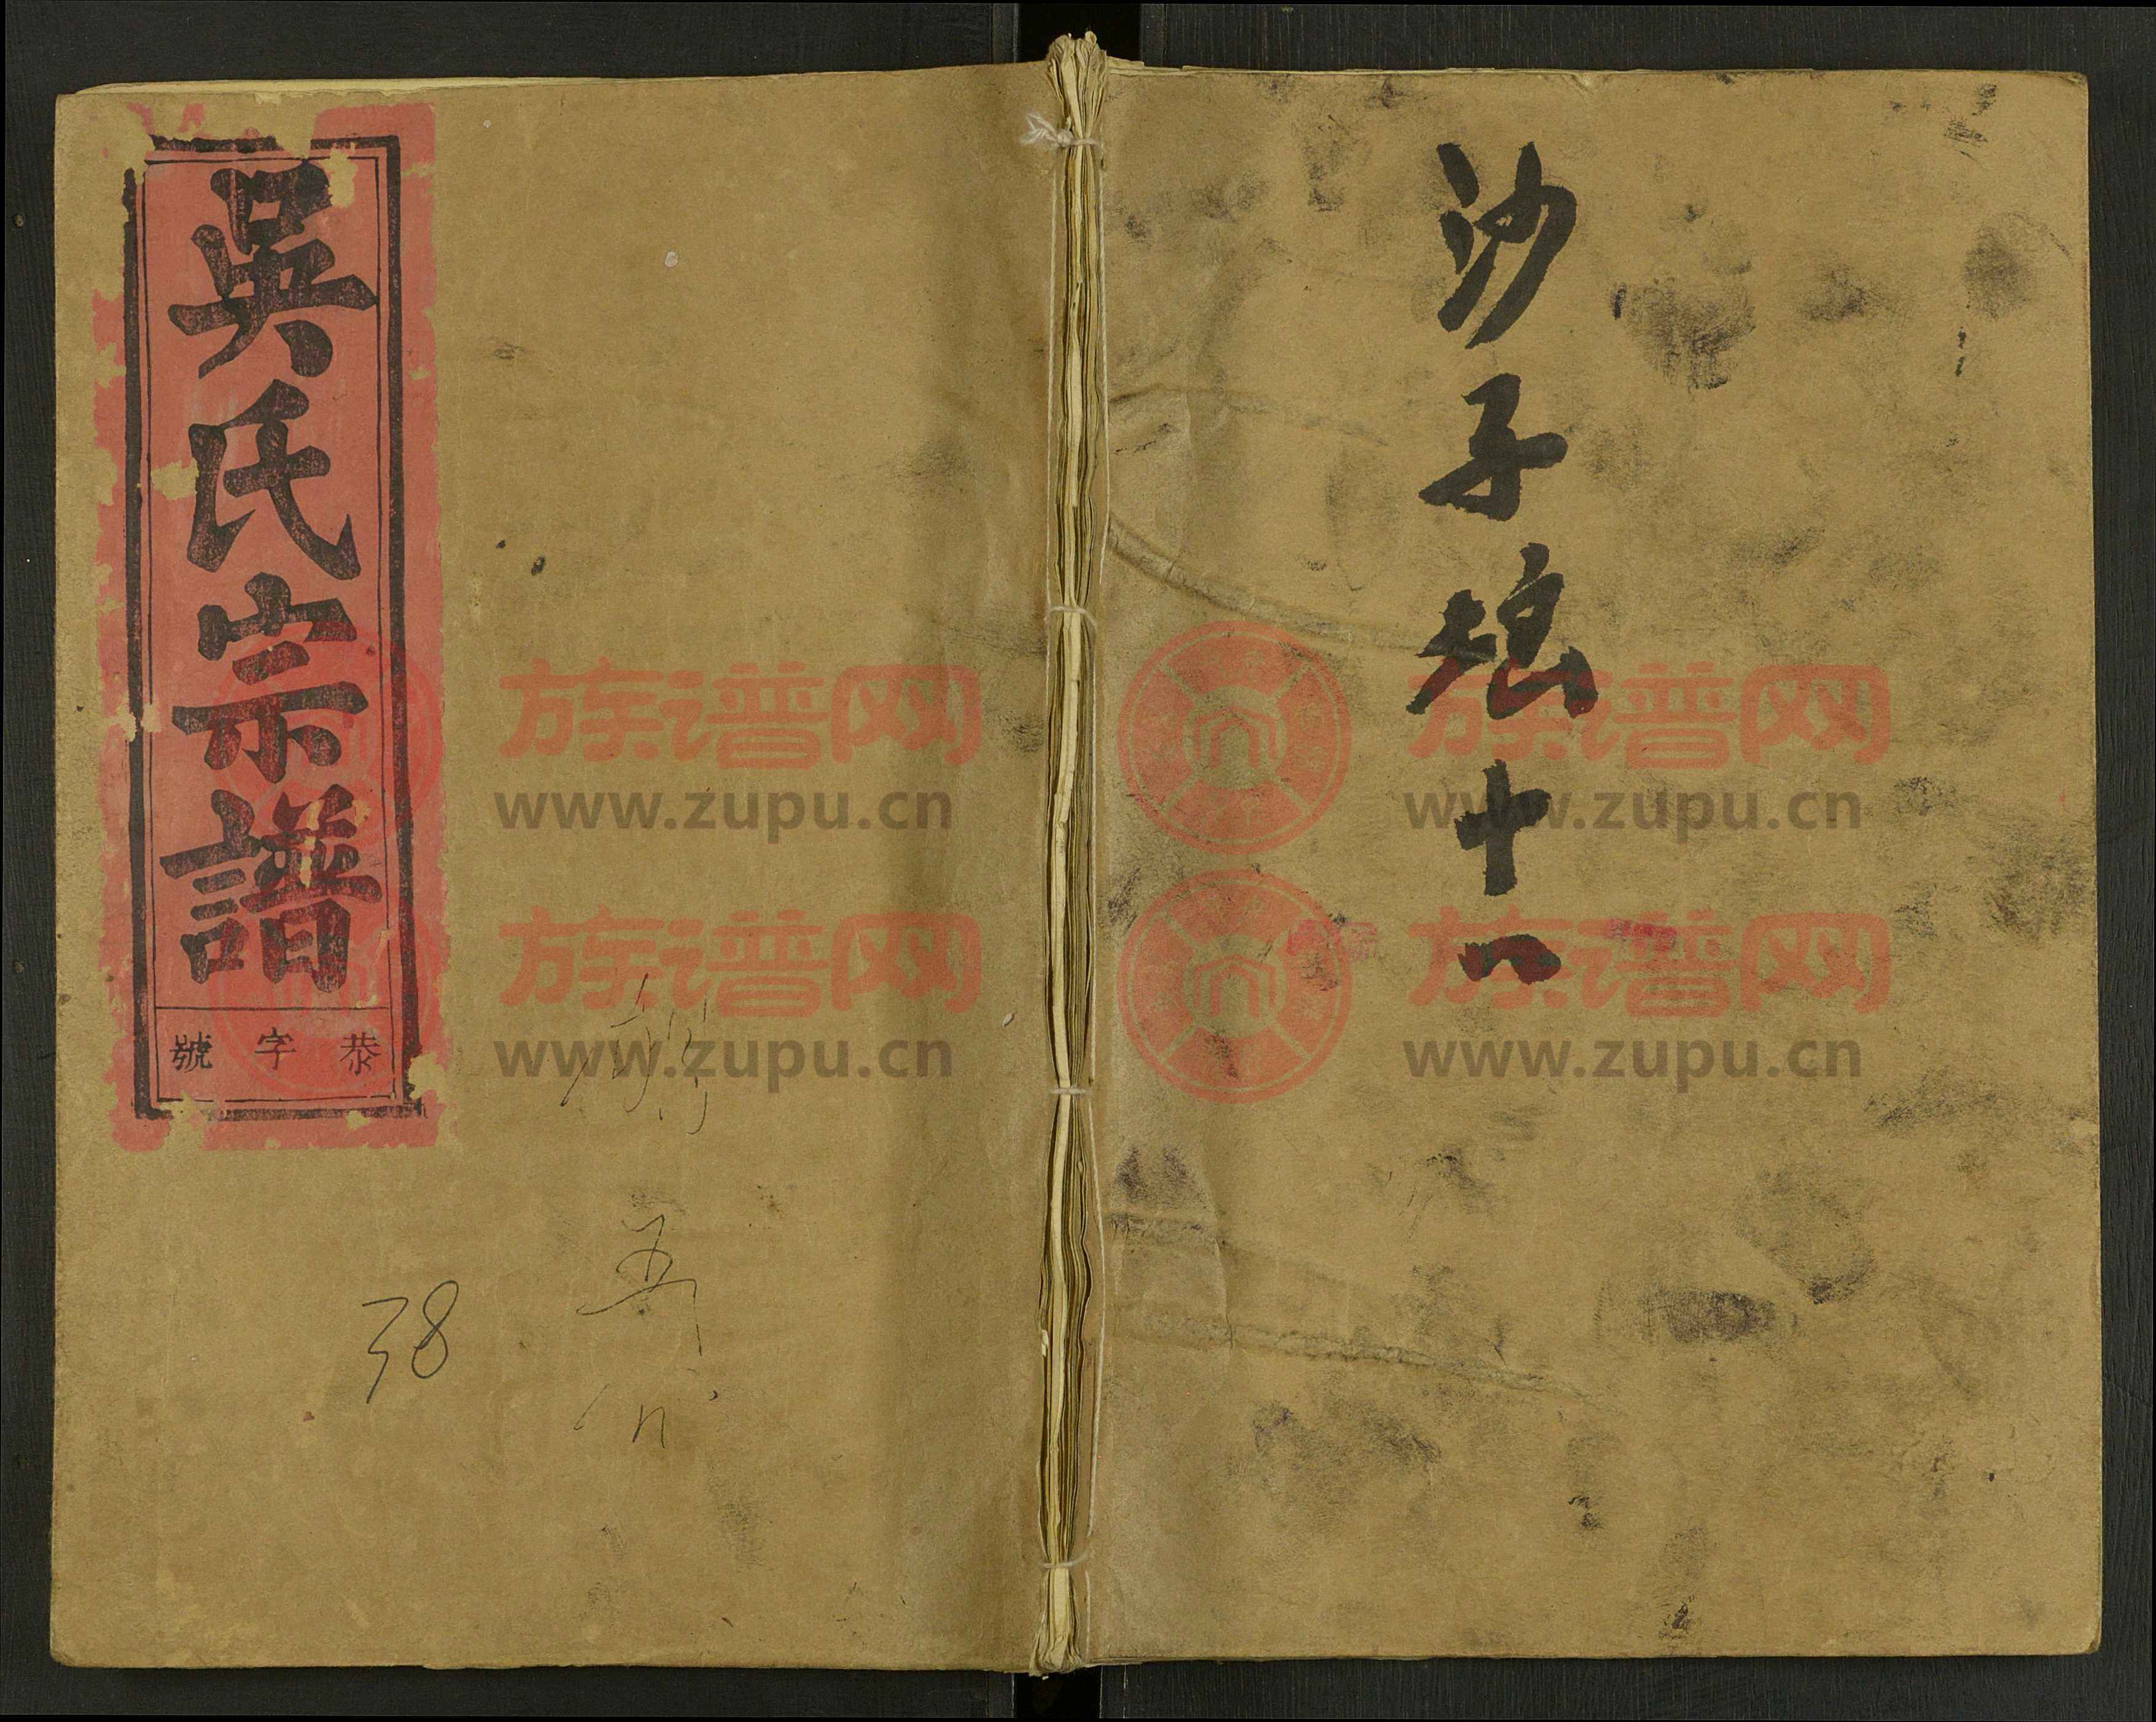 吳氏宗譜
恭字號
38
沙子塆十八
族谱网
www.zupu.cn
族谱网
www.zupu.cn
族谱网
www.zupu.cn
族谱网
www.zupu.cn